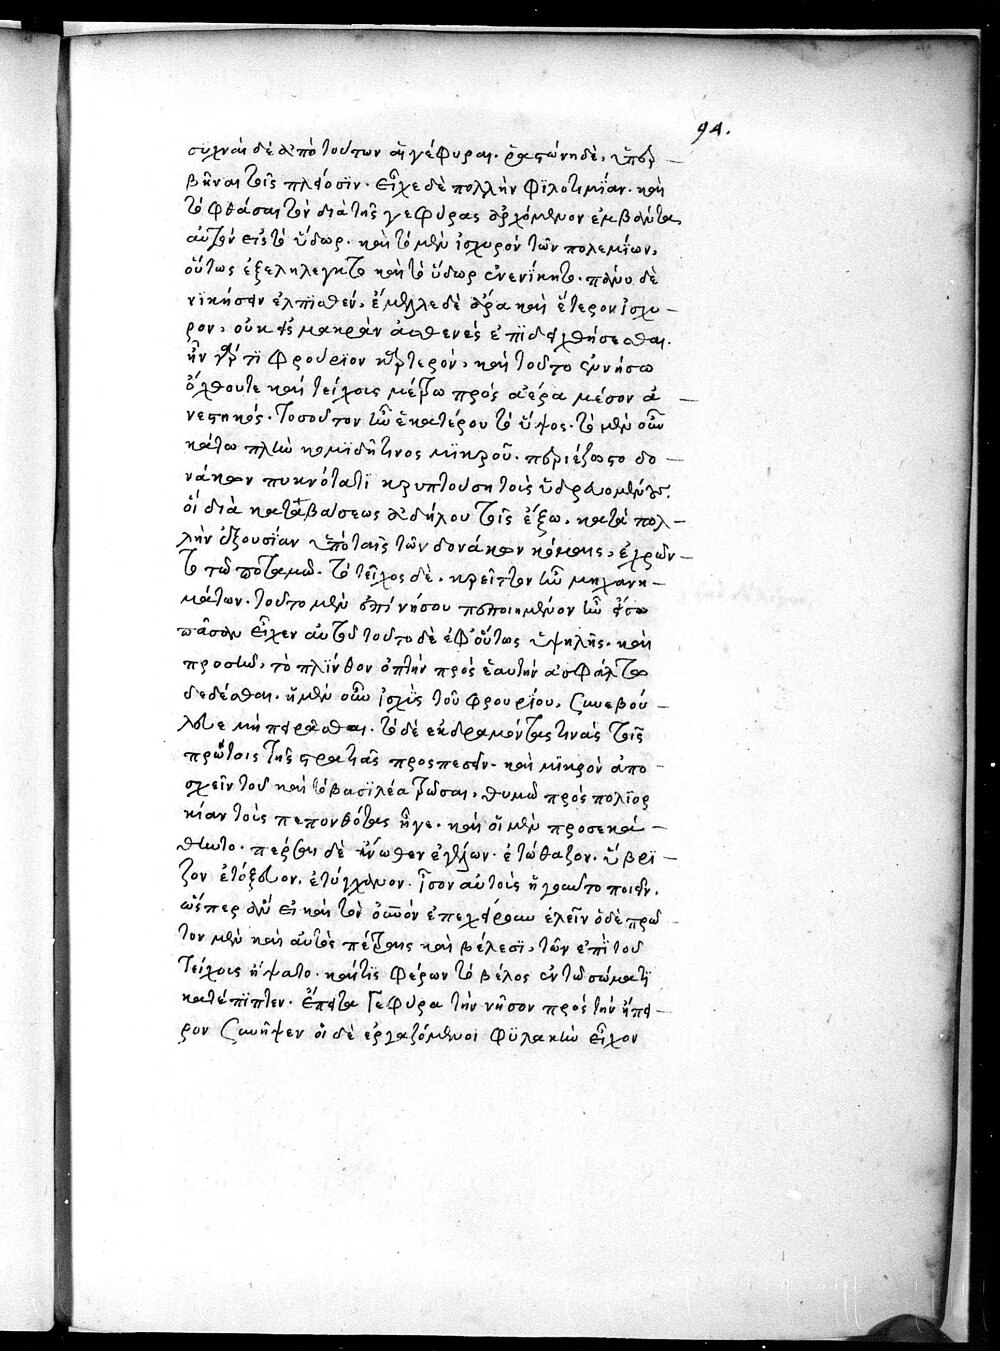 94.
συχναὶ δὲ ἀπὸ τούτων αἱ γέφυραι. ῥᾳστώνη δὲ, ὑπερ
βῆναι τοῖς πλείοσϊν. εἶχε δὲ πολλὴν φϊλοτιμίαν. καὶ
τὸ φθάσαι τὸν διὰ τῆς γεφύρας ἀρχόμενον ἐμβαλόντα
αὑτὸν εἰς τὸ ὕδωρ. καὶ τὸ μὲν ἰσχυρὸν τῶν πολεμίων,
οὕτως ἐξεληλεγκτο καὶ τὸ ὕδωρ ἐνενίκητο. πάνυ δὲ
νϊκήσειν ἐλπϊσθὲν, ἔμελλε δὲ ἄρα καὶ ἕτερον ἰσχυ-
ρὸν, οὐκ εἰς μακρὰν ἀσθενὲς ἐπϊδειχθήσεσθαι.
ἦν γάρ τϊ φρουρϊον καρτερὸν, καὶ τοῦτο ἐν νήσω
ὄχθου τε καὶ τείχους μέχρι πρὸς ἀέρα μέσον ἀ
νεστηκός. τοσοῦτον ἦν ἑκατέρου τὸ ὕψος. τὸ μὲν οὖν
κάτω πλὴν κομϊδῆ τινος μϊκροῦ. περιέζωστο δο
νάκων πυκνότατϊ κρυπτούση τοὺς ὑδρευομένους,
οἱ διὰ καταβάσεως ἀδήλου τοῖς ἔξω, κατὰ πολ-
λὴν ἐξουσίαν ὑπὸ ταῖς τῶν δονάκων κόμαις, ἐχρῶν-
το τῶ ποταμῶ. τὸ τεῖχος δὲ, κρεῖττον ἦν μηχανη-
μάτων. τοῦτο μὲν ἐπὶ νήσου πεποιημένον ἦν ἴσω
πᾶσαν εἶχεν αὐτοῦ τοῦτο δὲ ἐφ' οὕτως ὑψηλῆς. καὶ
προσέτι, τὸ πλϊνθον ὀπτὴν πρὸς ἑαυτὴν ἀσφάλτω
δεδέσθαι. ἡ μὲν οὖν ἰσχὺς τοῦ φρουρίου, συνεβού-
λευε μὴ πειρᾶσθαι. τὸ δὲ ἐκδραμόντας τινὰς τοῖς
πρώτοις τῆς στρατιᾶς προσπεσεῖν. καὶ μϊκρὸν ἀπο
σχεῖν τοῦ καὶ τὸ βασϊλέα τρῶσαι, θυμῶ πρὸς πολϊορ
κίαν τοὺς πεπονθότας ἦγε. καὶ οἱ μὲν προσεκά-
θηντο. πέρσαι δὲ ἄνωθεν ἐγέλων. ἐτώθαζον. ὕβρϊ-
ζον ἐτόξευον. ἐτύγχανον. ἴσον αὐτοὺς ἡγοῦντο ποιεῖν,
ὥσπερ ἂν εἰ καὶ τὸν οὐρανὸν ἐπεχείρουν ἑλεῖν ὁ δὲ πρῶ
τον μὲν καὶ αὐτὸς πέτραις καὶ βέλεσϊ, τῶν ἐπὶ τοῦ
τείχους ἥψατο. καί τϊς φέρων τὸ βέλος ἐν τῶ σώματϊ
κατέπϊπτεν. ἔπειτα γέφυρα τὴν νῆσον πρὸς τὴν ἤπει-
ρον συνῆψεν οἱ δὲ ἐργαζόμενοι φϋλακὴν εἶχον